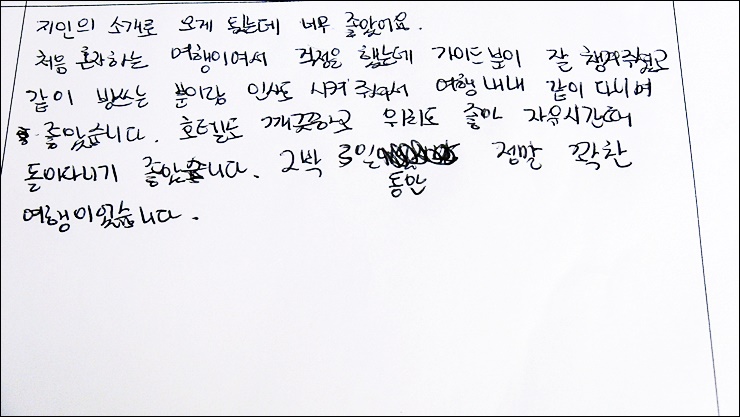 지인의 소개로 오게 됬는데 너무 좋았어요.
처음 혼자하는 여행이여서 걱정을 했는데 가이드분이 잘 챙겨주셨고
같이 방쓰는 분이랑 인사도 시켜 주셔서 여행내내 같이 다니며
좋았습니다. 호텔도 깨끗하고 위치도 좋아 자유시간에
돌아다니기 좋았습니다. 2박 3일 정말 꽉찬
동안
여행이었습니다.